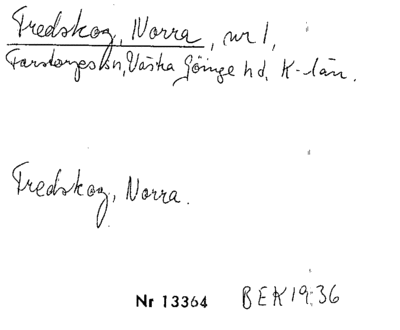 Fredskog, Norra, nr 1,
Farstorps sn, Västra Göinge hd, K-län.
Fredskog, Norra.
Nr 13364 BEK19:36